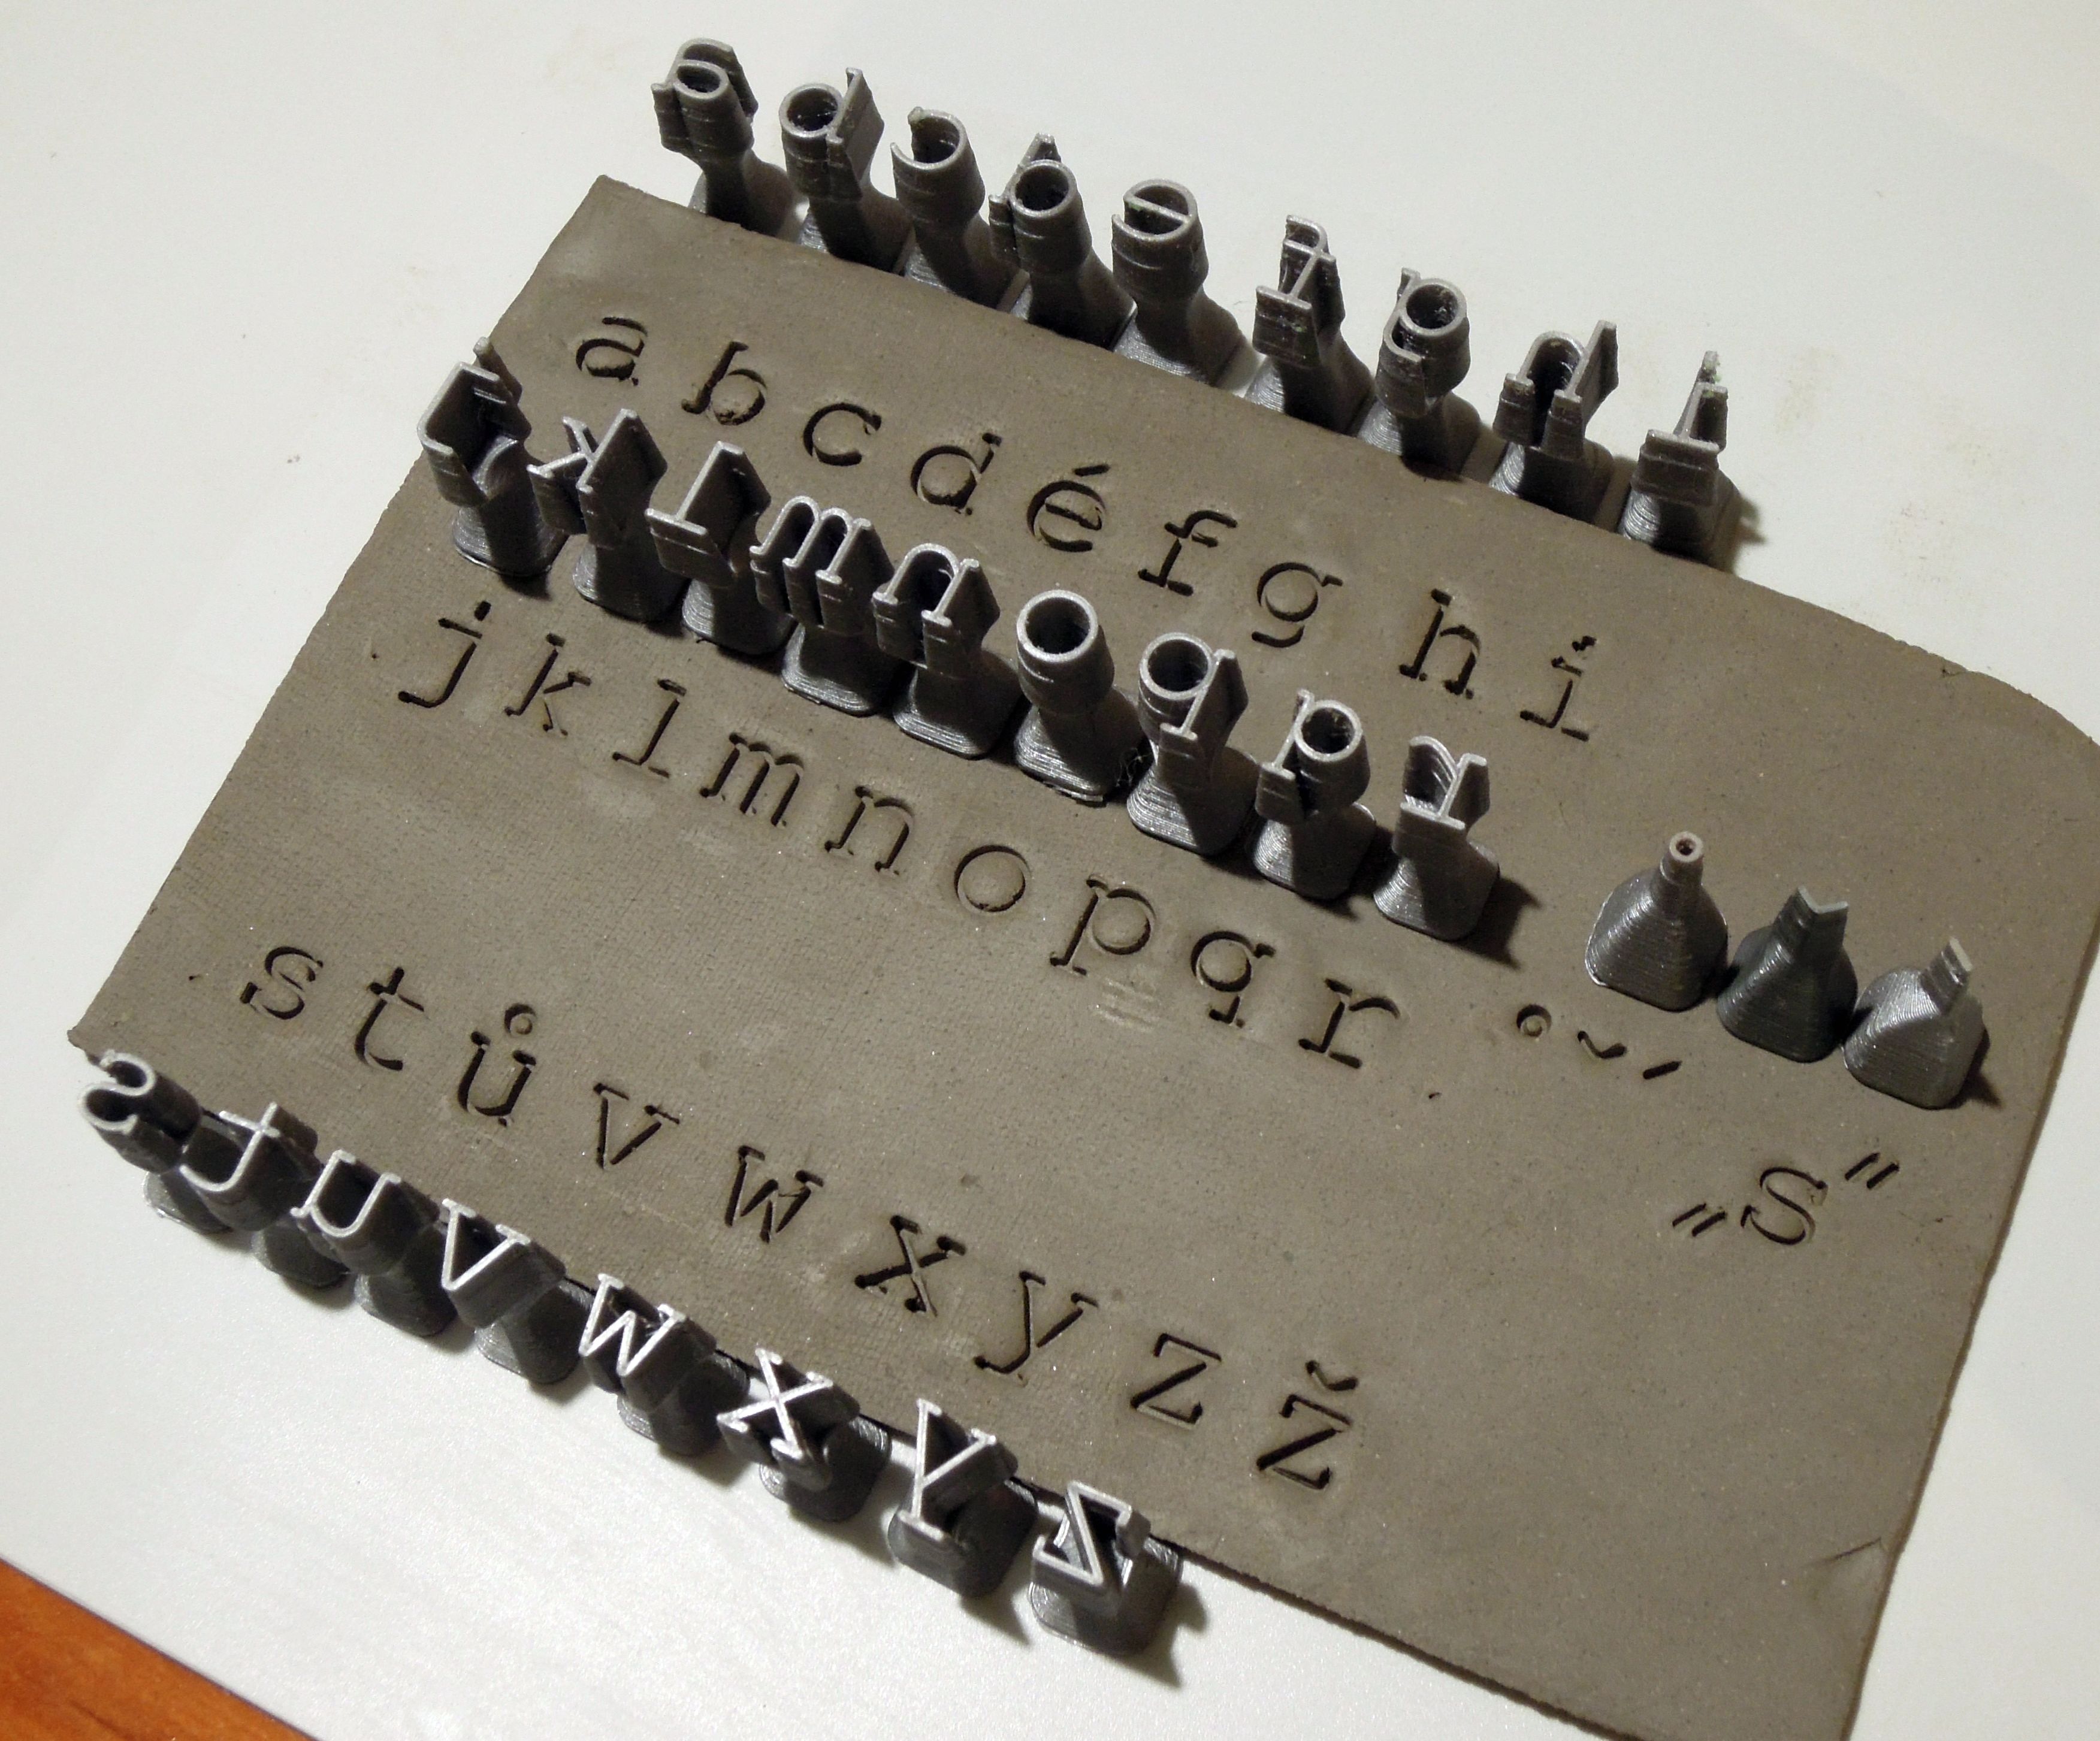 a b c d é f g h i
j k l m n o p q r ° ˇ ´
s t ů v w x y z ž
„S"